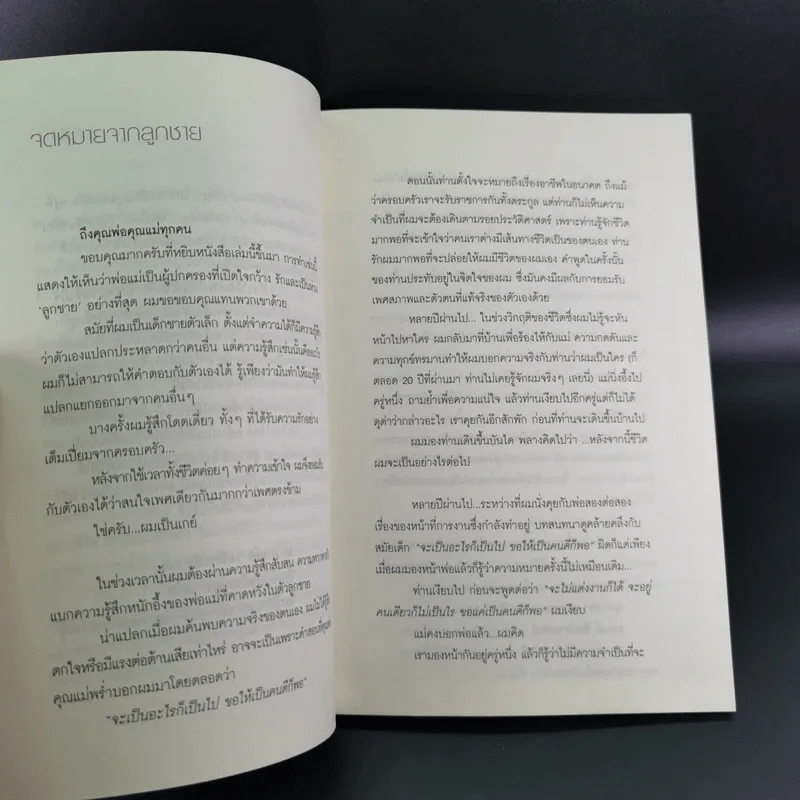 จดหมายจากลูกชาย
ถึงคุณพ่อคุณแม่ทุกคน
ขอบคุณมากครับที่หยิบหนังสือเล่มนี้ขึ้นมา การทำเช่นนี้
แสดงให้เห็นว่าพ่อแม่เป็นผู้ปกครองที่เปิดใจกว้าง รักและเป็นห่วง
‘ลูกชาย’ อย่างที่สุด ผมขอขอบคุณแทนพวกเขาด้วย
สมัยที่ผมเป็นเด็กชายตัวเล็ก ตั้งแต่จำความได้ก็มีความรู้สึก
ว่าตัวเองแปลกประหลาดกว่าคนอื่น แต่ความรู้สึกเช่นนั้นคืออะไร
ผมก็ไม่สามารถให้คำตอบกับตัวเองได้ รู้เพียงว่ามันทำให้ผมรู้สึก
แปลกแยกออกมาจากคนอื่นๆ
บางครั้งผมรู้สึกโดดเดี่ยว ทั้งๆ ที่ได้รับความรักอย่าง
เต็มเปี่ยมจากครอบครัว...
หลังจากใช้เวลาทั้งชีวิตค่อยๆ ทำความเข้าใจ ผมจึงยอมรับ
กับตัวเองได้ว่าสนใจเพศเดียวกันมากกว่าเพศตรงข้าม
ใช่ครับ...ผมเป็นเกย์
ในช่วงเวลานั้นผมต้องผ่านความรู้สึกสับสน ความหวาดกลัว
แบกความรู้สึกหนักอึ้งของพ่อแม่ที่คาดหวังในตัวลูกชาย
น่าแปลกเมื่อผมค้นพบความจริงของตนเอง ผมไม่ได้รู้สึก
ตกใจหรือมีแรงต่อต้านเสียเท่าไหร่ อาจจะเป็นเพราะคำสอนที่
คุณแม่พร่ำบอกผมมาโดยตลอดว่า
“จะเป็นอะไรก็เป็นไป ขอให้เป็นคนดีก็พอ”
ตอนนั้นท่านตั้งใจจะหมายถึงเรื่องอาชีพในอนาคต ถึงแม้
ว่าครอบครัวเราจะรับราชการกันทั้งตระกูล แต่ท่านก็ไม่เห็นความ
จำเป็นที่ผมจะต้องเดินตามรอยประวัติศาสตร์ เพราะท่านรู้จักชีวิต
มากพอที่จะเข้าใจว่าคนเราต่างมีเส้นทางชีวิตเป็นของตนเอง ท่าน
รักผมมากพอที่จะปล่อยให้ผมมีชีวิตของผมเอง คำพูดในครั้งนั้น
ของท่านประทับอยู่ในจิตใจของผม ซึ่งมันคงมีผลกับการยอมรับ
เพศสภาพและตัวตนที่แท้จริงของตัวเองด้วย
หลายปีผ่านไป... ในช่วงวิกฤติของชีวิตซึ่งผมไม่รู้จะหัน
หน้าไปหาใคร ผมกลับมาที่บ้านเพื่อร้องไห้กับแม่ ความกดดันและ
ความทุกข์ทรมานทำให้ผมบอกความจริงกับท่านว่าผมเป็นใคร (ก็
ตลอด 20 ปีที่ผ่านมา ท่านไม่เคยรู้จักผมจริงๆ เลยนี่) แม่นิ่งอึ้งไป
ครู่หนึ่ง ถามย้ำเพื่อความแน่ใจ แล้วท่านเงียบไปอีกครู่แต่ก็ไม่ได้
ดุด่าว่ากล่าวอะไร เราคุยกันอีกสักพัก ก่อนที่ท่านจะเดินขึ้นบ้านไป
ผมมองท่านเดินขึ้นบันได พลางคิดไปว่า ...หลังจากนี้ชีวิต
ผมจะเป็นอย่างไรต่อไป
หลายปีผ่านไป...ระหว่างที่ผมนั่งคุยกับพ่อสองต่อสอง
เรื่องของหน้าที่การงานซึ่งกำลังทำอยู่ บทสนทนาดูคล้ายคลึงกับ
สมัยเด็ก “จะเป็นอะไรก็เป็นไป ขอให้เป็นคนดีก็พอ” ผิดก็แต่เพียง
เมื่อผมมองหน้าพ่อแล้วก็รู้ว่าความหมายครั้งนี้ไม่เหมือนเดิม...
ท่านเงียบไป ก่อนจะพูดต่อว่า “จะไม่แต่งงานก็ได้ จะอยู่
คนเดียวก็ไม่เป็นไร ขอแค่เป็นคนดีก็พอ” ผมเงียบ
แม่คงบอกพ่อแล้ว...ผมคิด
เรามองหน้ากันอยู่ครู่หนึ่ง แล้วก็รู้ว่าไม่มีความจำเป็นที่จะ